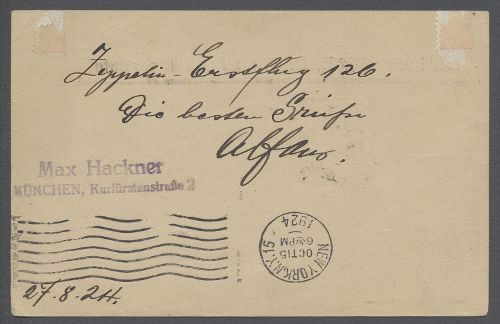 Zeppelin-Erstflug 126.
Die besten Grüße
Max Hackner
MÜNCHEN, Kurfürstenstraße 2
NEW YORK, N.Y. 15
OCT 15
6-PM
1924
27.8.24.